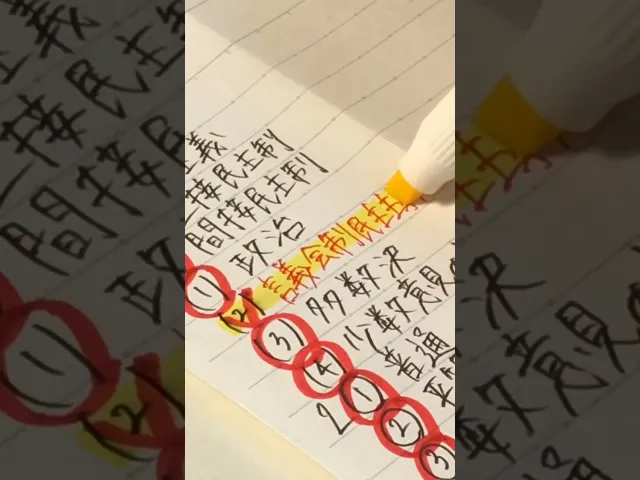 主義
接民主制
間接民主制
(1) 政治
(2) 議会制民主主
(3) 多数決
(4) 少数意見
2 (1) 普通
(2) 平
(3)